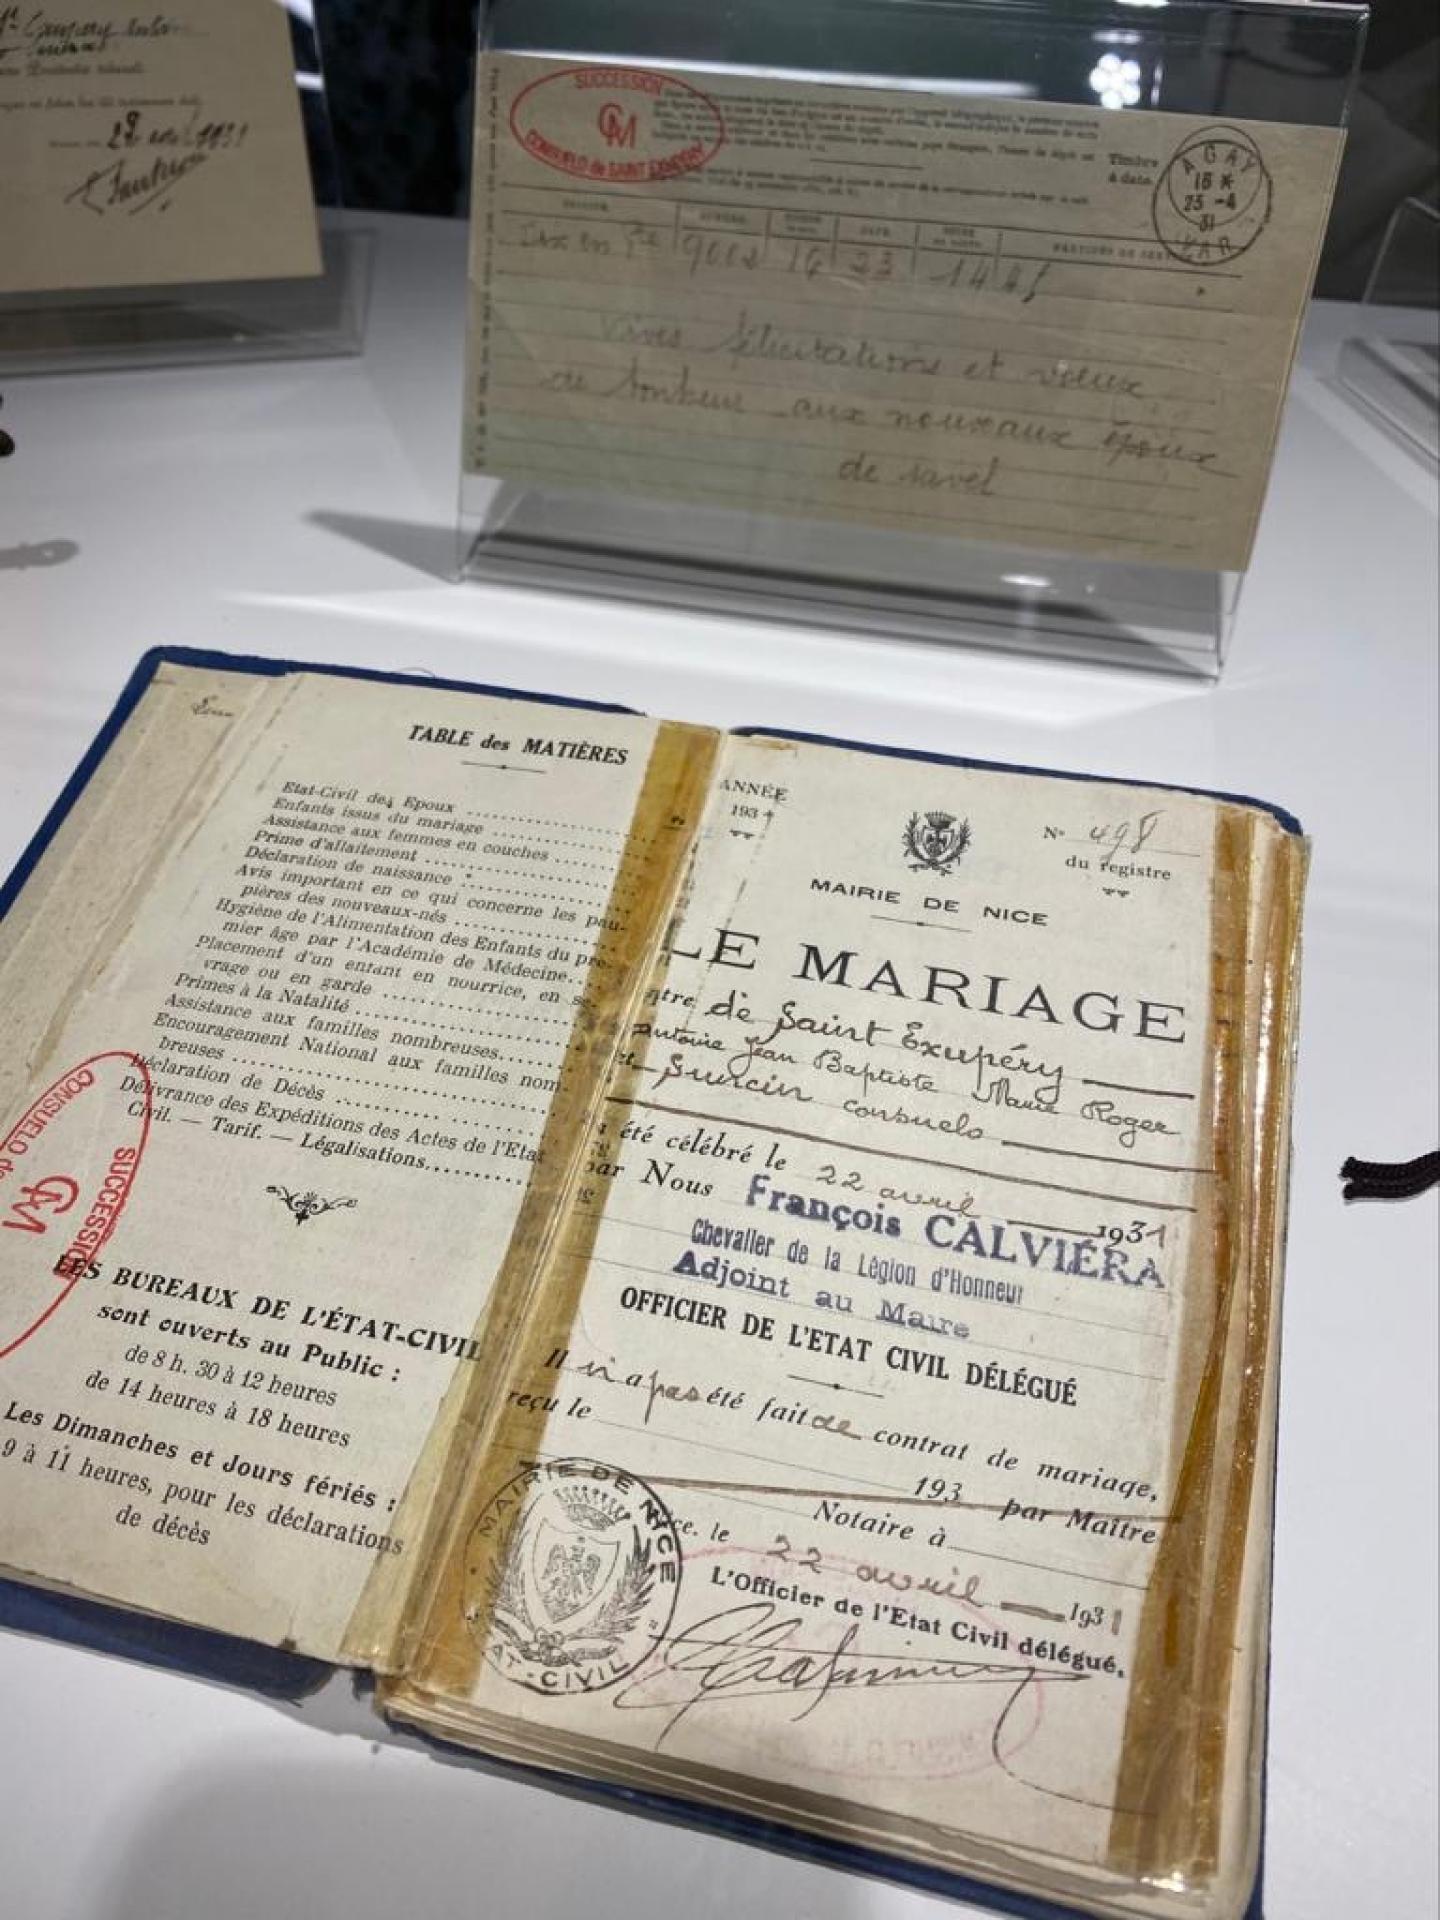 28 avril 1931
SUCCESSION
CM
CONSUELO de SAINT EXUPÉRY
Timbre
à date.
AGAY
16 *
23 -4
31
VAR
9002 16 23 14 45
Vives félicitations et vœux
de bonheur aux nouveaux époux
de
TABLE des MATIÈRES
Etat-Civil des Epoux
Enfants issus du mariage
Assistance aux femmes en couches
Prime d'allaitement
Déclaration de naissance
Avis important en ce qui concerne les pau-
pières des nouveaux-nés
Hygiène de l'Alimentation des Enfants du pre-
mier âge par l'Académie de Médecine
Placement d'un enfant en nourrice, en se-
vrage ou en garde
Primes à la Natalité
Assistance aux familles nombreuses
Encouragement National aux familles nom-
breuses
Déclaration de Décès
Délivrance des Expéditions des Actes de l'Etat
Civil. — Tarif. — Légalisations
CONSUELO de
CM
SUCCESSION
LES BUREAUX DE L'ÉTAT-CIVIL
sont ouverts au Public :
de 8 h. 30 à 12 heures
de 14 heures à 18 heures
Les Dimanches et Jours fériés :
9 à 11 heures, pour les déclarations
de décès
ANNÉE
1931
N° 498
du registre
MAIRIE DE NICE
LE MARIAGE
ntre de Saint Exupéry
Antoine Jean Baptiste Marie Roger
et Suncin Consuelo
a été célébré le 22 avril 1931
par Nous François CALVIÉRA
Chevalier de la Légion d'Honneur
Adjoint au Maire
OFFICIER DE L'ETAT CIVIL DÉLÉGUÉ
Il n'a pas été fait de contrat de mariage,
reçu le 193 par Maître
Notaire à
ce, le 22 avril 1931
L'Officier de l'Etat Civil délégué,
MAIRIE DE NICE
ETAT-CIVIL